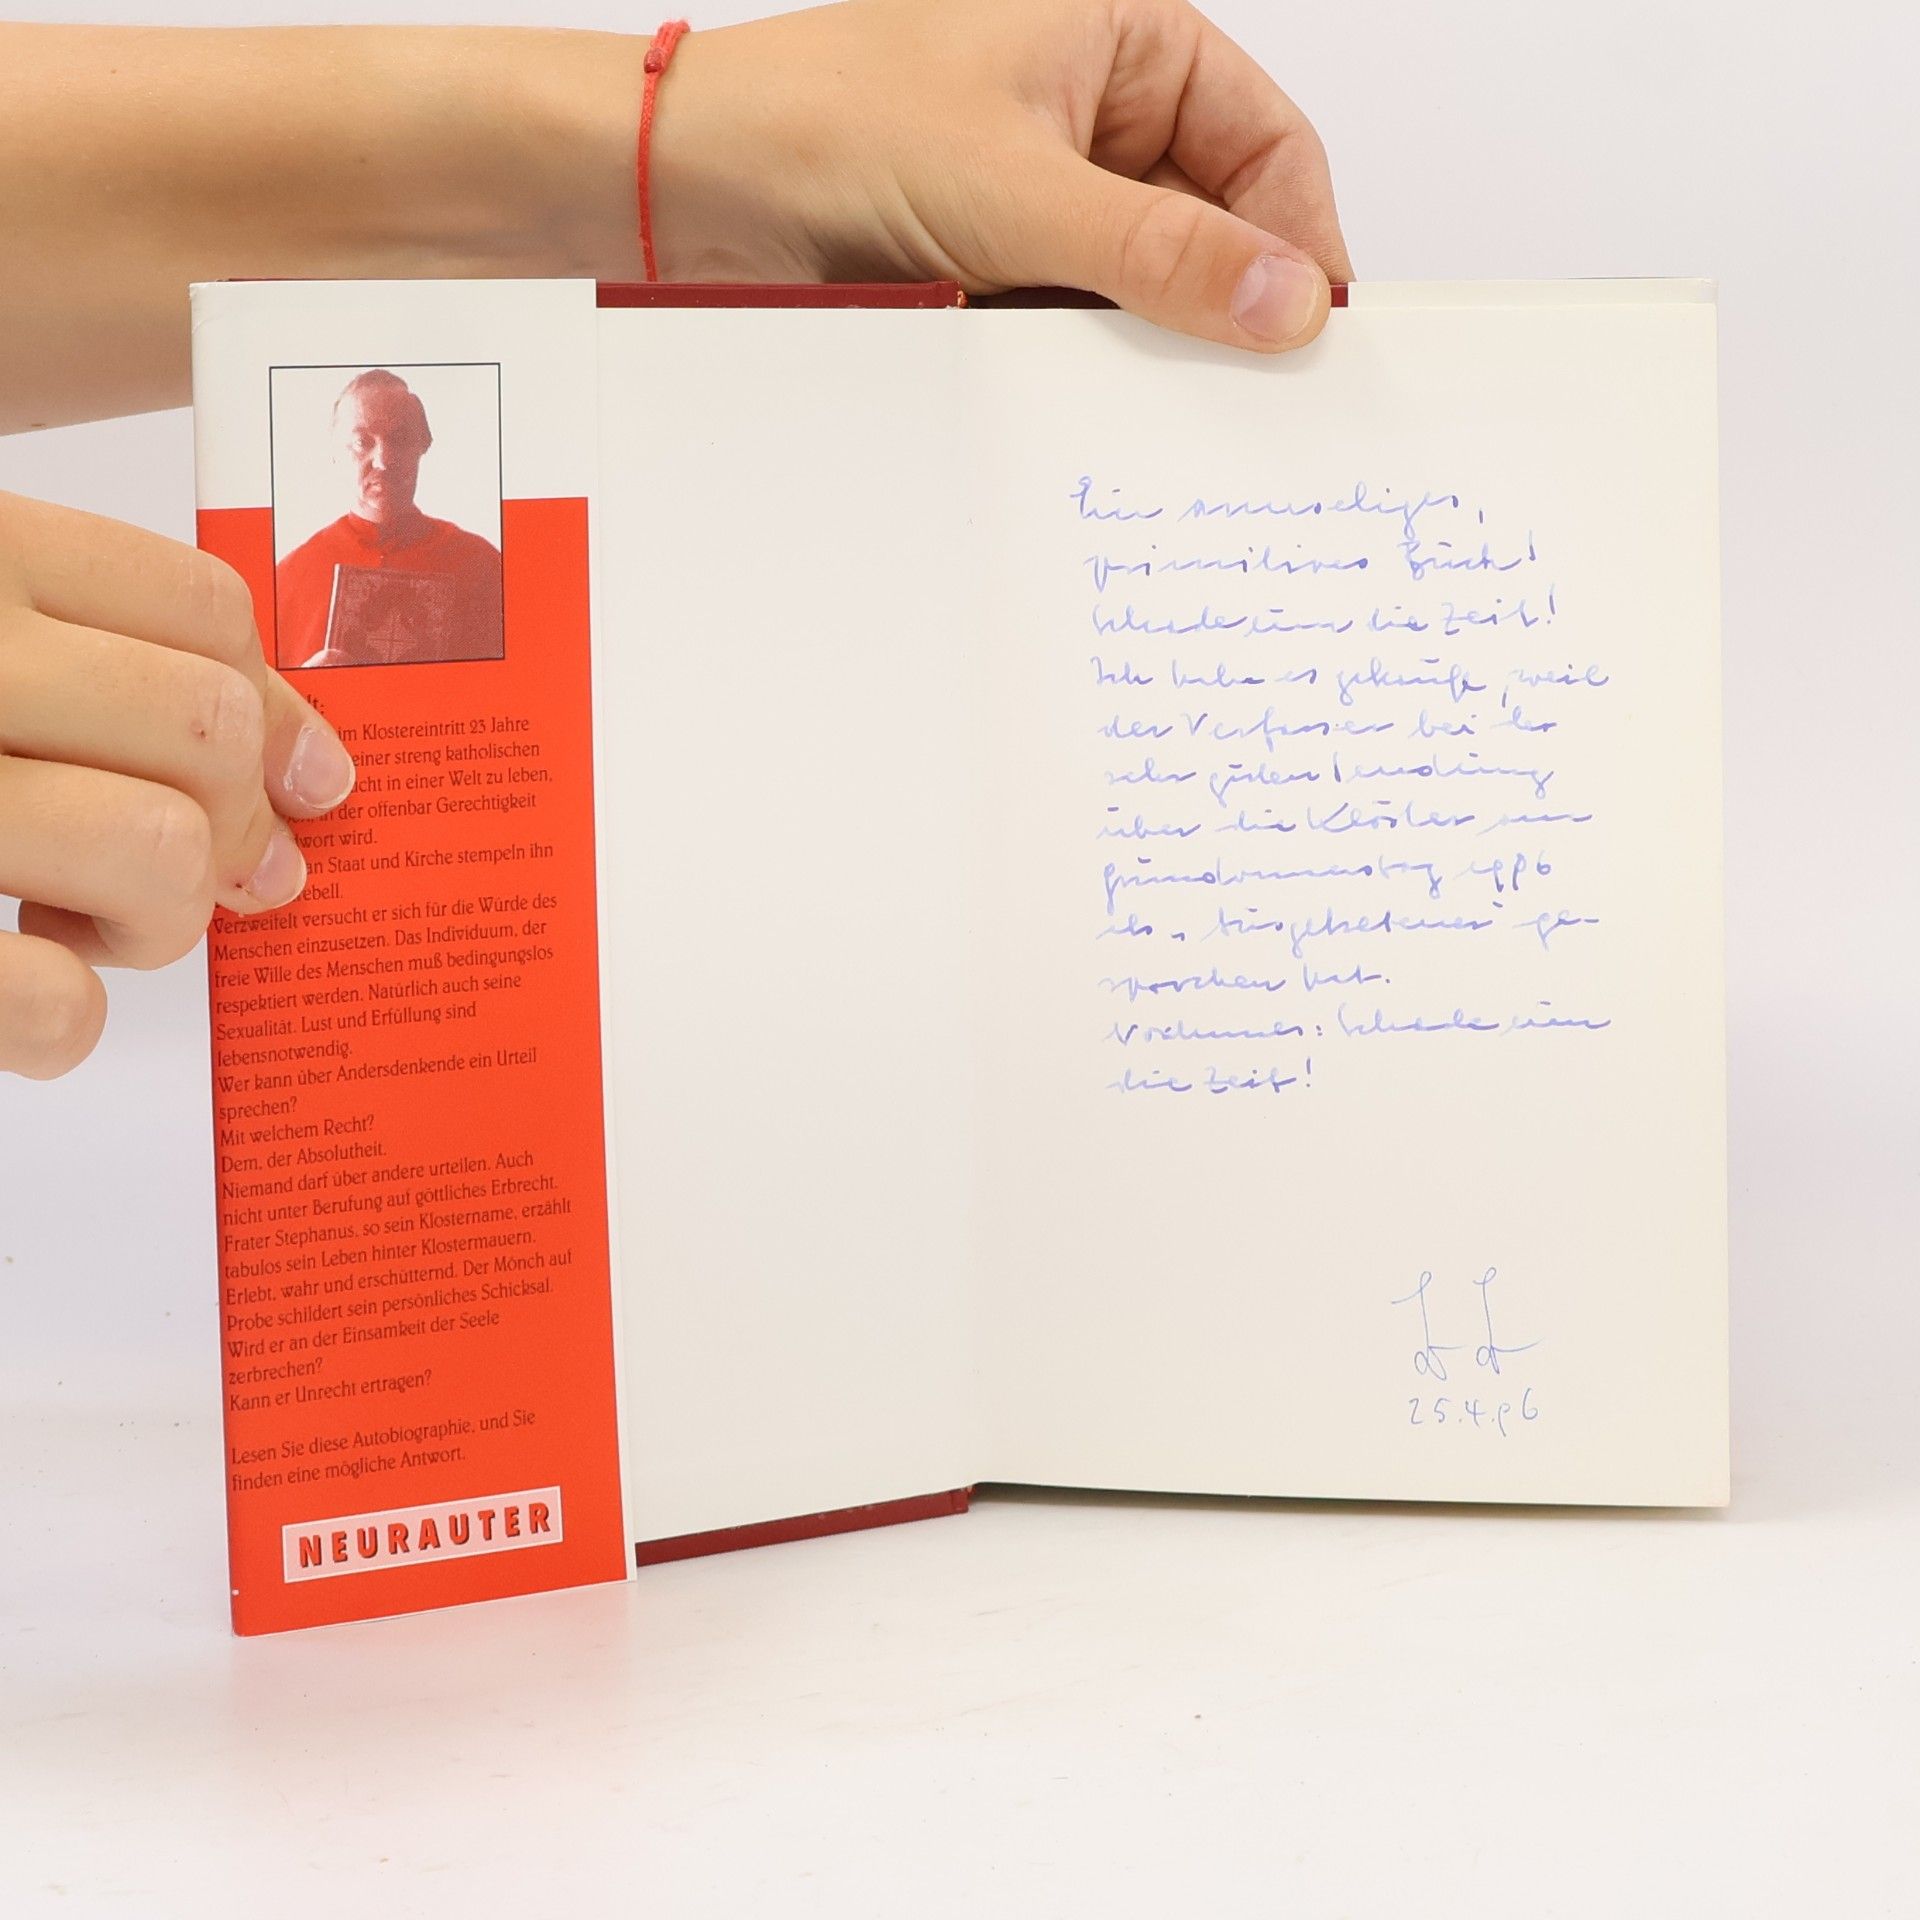 lt:
im Klostereintritt 23 Jahre
einer streng katholischen
ucht in einer Welt zu leben,
in der offenbar Gerechtigkeit
wort wird.
an Staat und Kirche stempeln ihn
ebell.
Verzweifelt versucht er sich für die Würde des
Menschen einzusetzen. Das Individuum, der
freie Wille des Menschen muß bedingungslos
respektiert werden. Natürlich auch seine
Sexualität. Lust und Erfüllung sind
lebensnotwendig.
Wer kann über Andersdenkende ein Urteil
sprechen?
Mit welchem Recht?
Dem, der Absolutheit.
Niemand darf über andere urteilen. Auch
nicht unter Berufung auf göttliches Erbrecht.
Frater Stephanus, so sein Klostername, erzählt
tabulos sein Leben hinter Klostermauern.
Erlebt, wahr und erschütternd. Der Mönch auf
Probe schildert sein persönliches Schicksal.
Wird er an der Einsamkeit der Seele
zerbrechen?
Kann er Unrecht ertragen?
Lesen Sie diese Autobiographie, und Sie
finden eine mögliche Antwort.
NEURAUTER
Ein armseliges,
primitives Buch!
Schade um die Zeit!
Ich habe es gekauft, weil
der Verfasser bei der
sehr guten Sendung
über die Klöster am
Gründonnerstag 1996
als „Ausgetretener" ge-
sprochen hat.
Nochmals: Schade um
die Zeit!
25.4.96